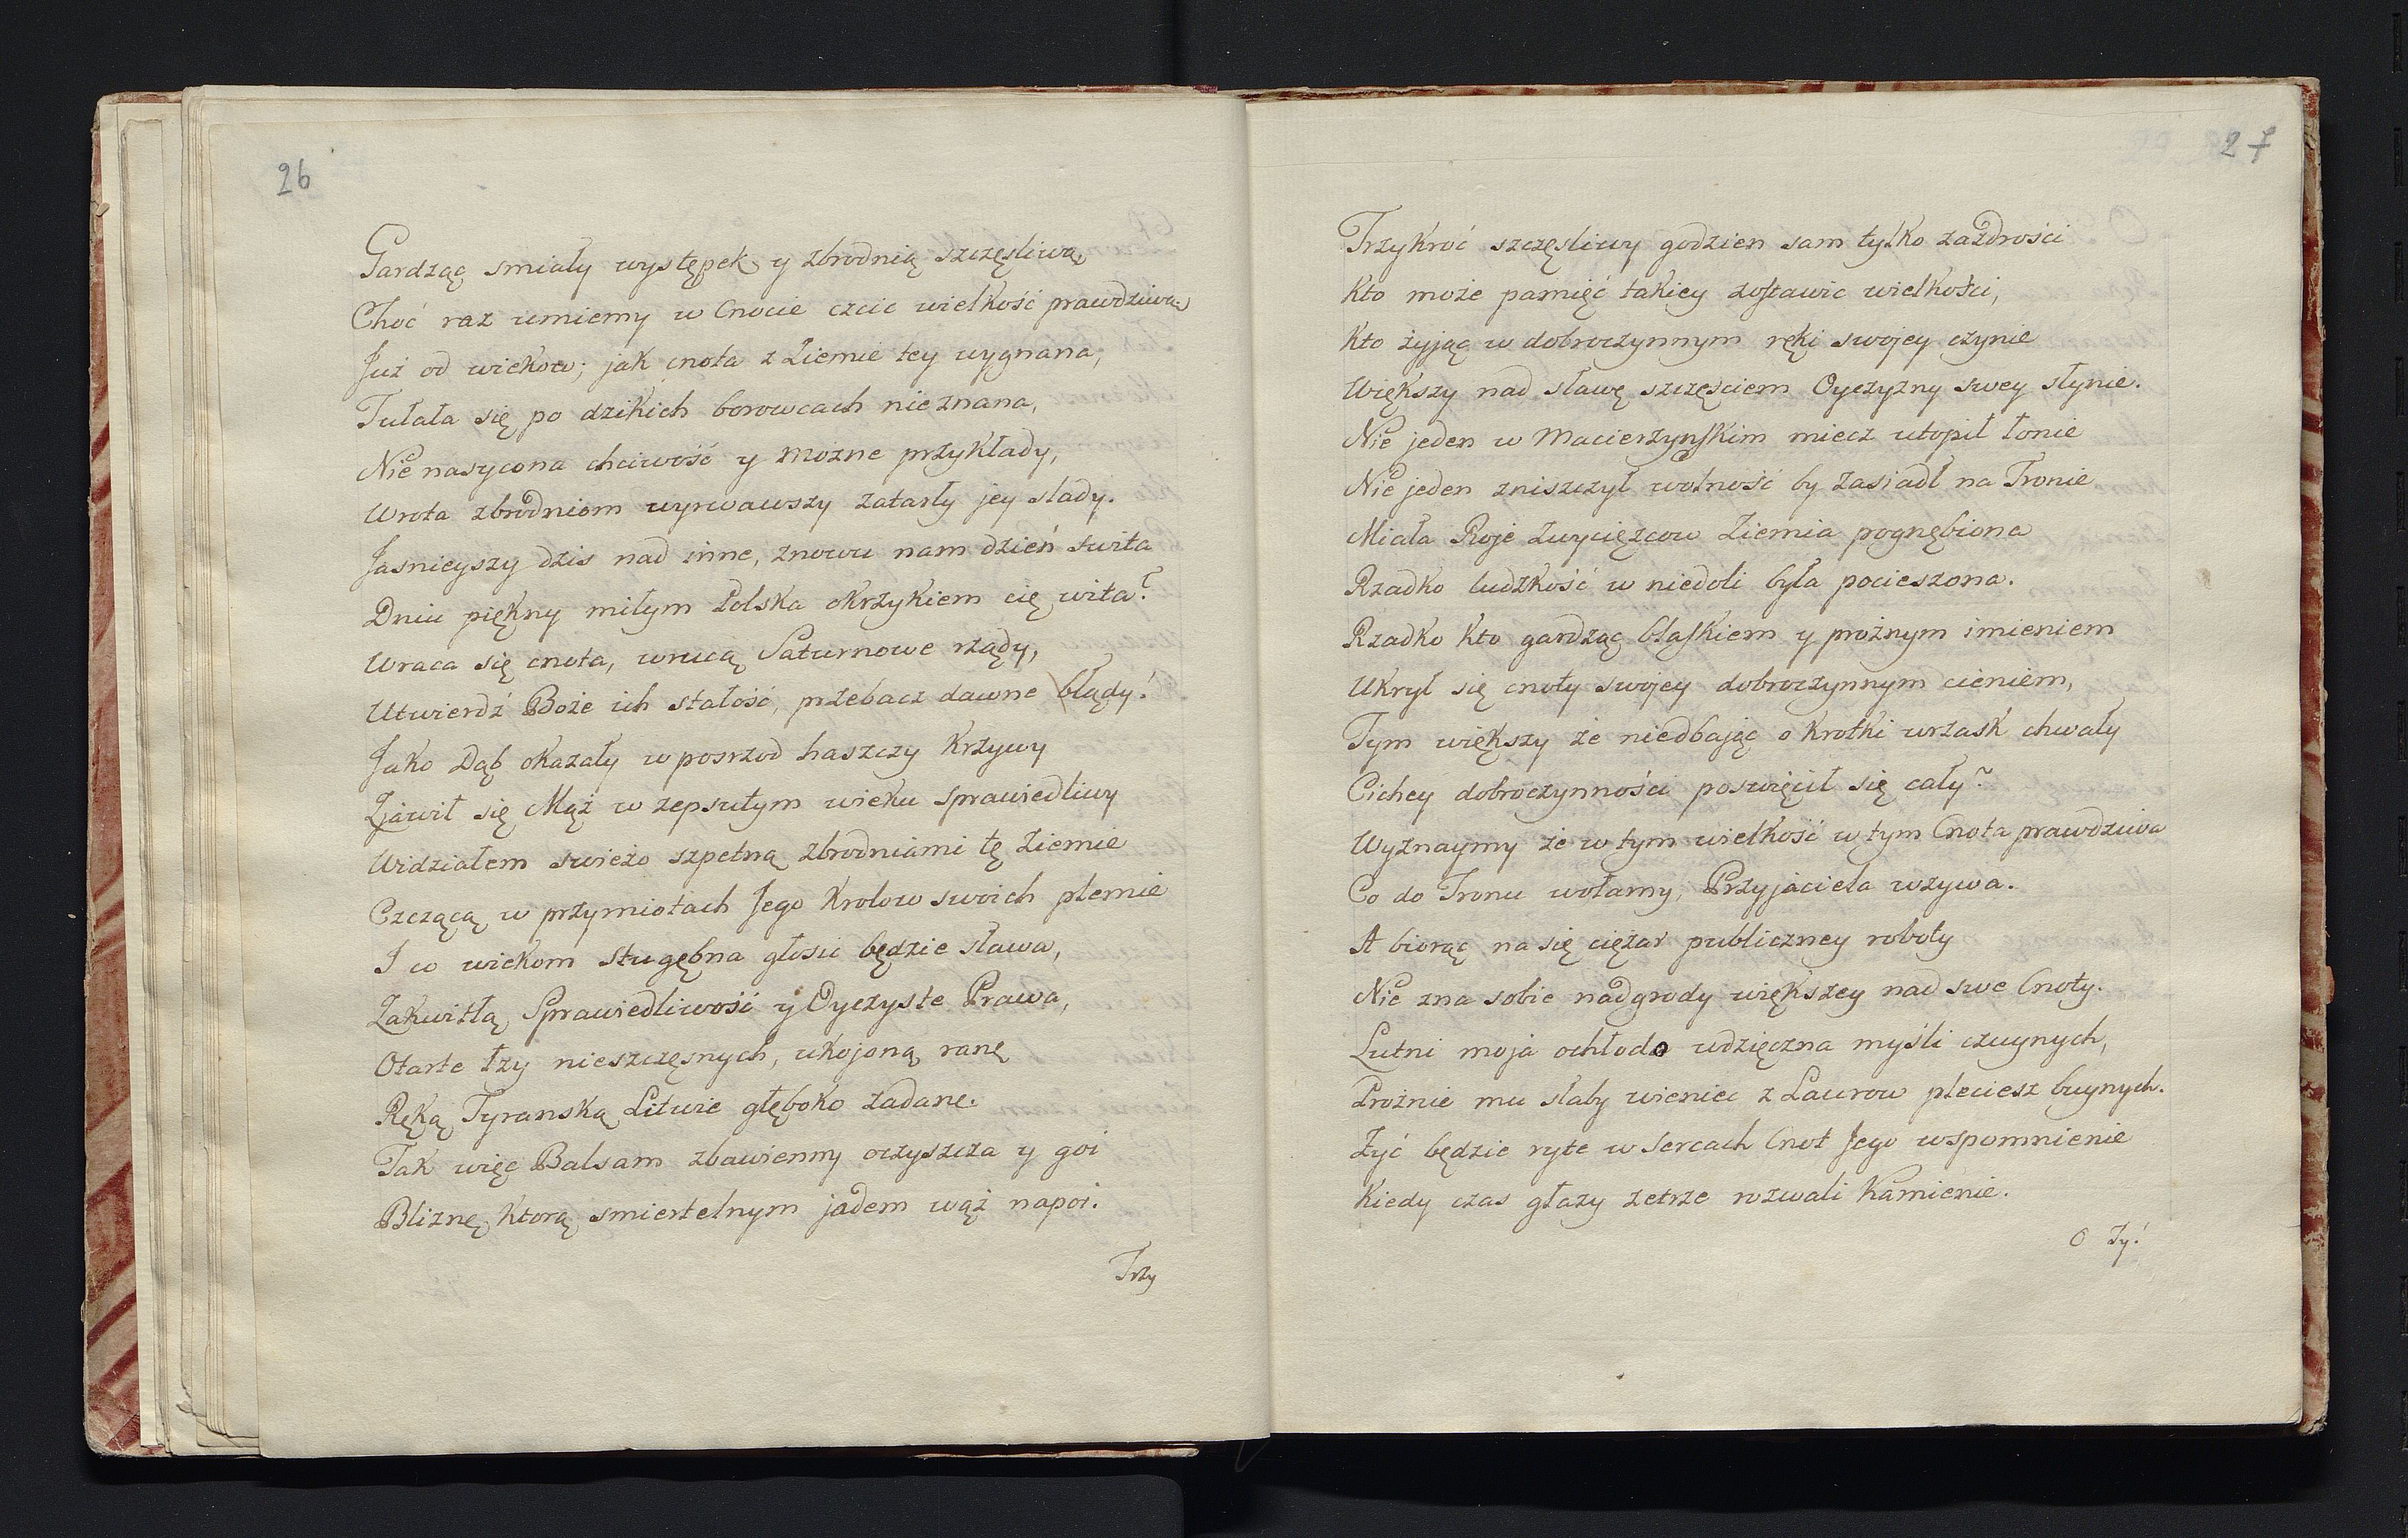 26
Gardząc smiały występek y zbrodnią szczęsliwą,
Choć raz umiemy w Cnocie czcic wielkość prawdziwą
Już od wiekow; jak cnota z Ziemie tey wygnana,
Tułała się po dzikich borowcach nieznana,
Nie nasycona chciwość y możne przykłady,
Wrota zbrodniom wyrwawszy zatarły jey slady.
Jasnieyszy dzis nad inne, znowu nam dzień swita
Dniu piękny miłym Polska okrzykiem cię wita?
Wraca się cnota, wrucą Saturnowe rządy,
Utwierdź Boże ich stałość, przebacz dawne błądy!
Jako Dąb okazały w posrzod haszczy krzywy
Zjawił się Mąż w zepsutym wieku sprawiedliwy
Widziałem swieżo szpetną zbrodniami tę Ziemie
Czczącą w przymiotach Jego Krolow swoich plemie
I co wiekom stugębna głosić będzie sława,
Zakwitłą Sprawiedliwość y Oyczyste Prawa,
Otarte łzy nieszczęsnych, ukojoną ranę
Ręką Tyranską Litwie głęboko zadane.
Tak więc Balsam zbawienny oczyszcza y goi
Bliznę, ktorą smiertelnym jadem wąż napoi.
Trzy
27
Trzykroć szczęsliwy godzien sam tylko zazdrości
Kto może pamięć takiey zostawic wielkości,
Kto żyjąc w dobroczynnym ręki swojey czynie
Większy nad sławę szczęściem Oyczyzny swey słynie.
Nie jeden w Macierzynskim miecz utopił łonie
Nie jeden zniszczył wolność by zasiadł na Tronie
Miała Roje Zwycięzcow Ziemia pognębiona
Rzadko ludzkość w niedoli była pocieszona.
Rzadko kto gardząc błaskiem y prożnym imieniem
Ukrył się cnoty swojey dobroczynnym cieniem,
Tym większy że niedbając o krotki wrzask chwały
Cichey dobroczynności poswięcił się cały?
Wyznaymy że w tym wielkość w tym Cnota prawdziwa
Co do Tronu wołamy, Przyjaciela wzywa.
A biorąc na się ciężar publiczney roboty
Nie zna sobie nadgrody większey nad swe Cnoty.
Lutni moja ochłodo wdzięczna myśli czuynych,
Prożnie mu słaby wieniec z Laurow pleciesz buynych.
Żyć będzie ryte w sercach Cnot Jego wspomnienie
Kiedy czas głazy zetrze rozwali kamienie.
O Ty!